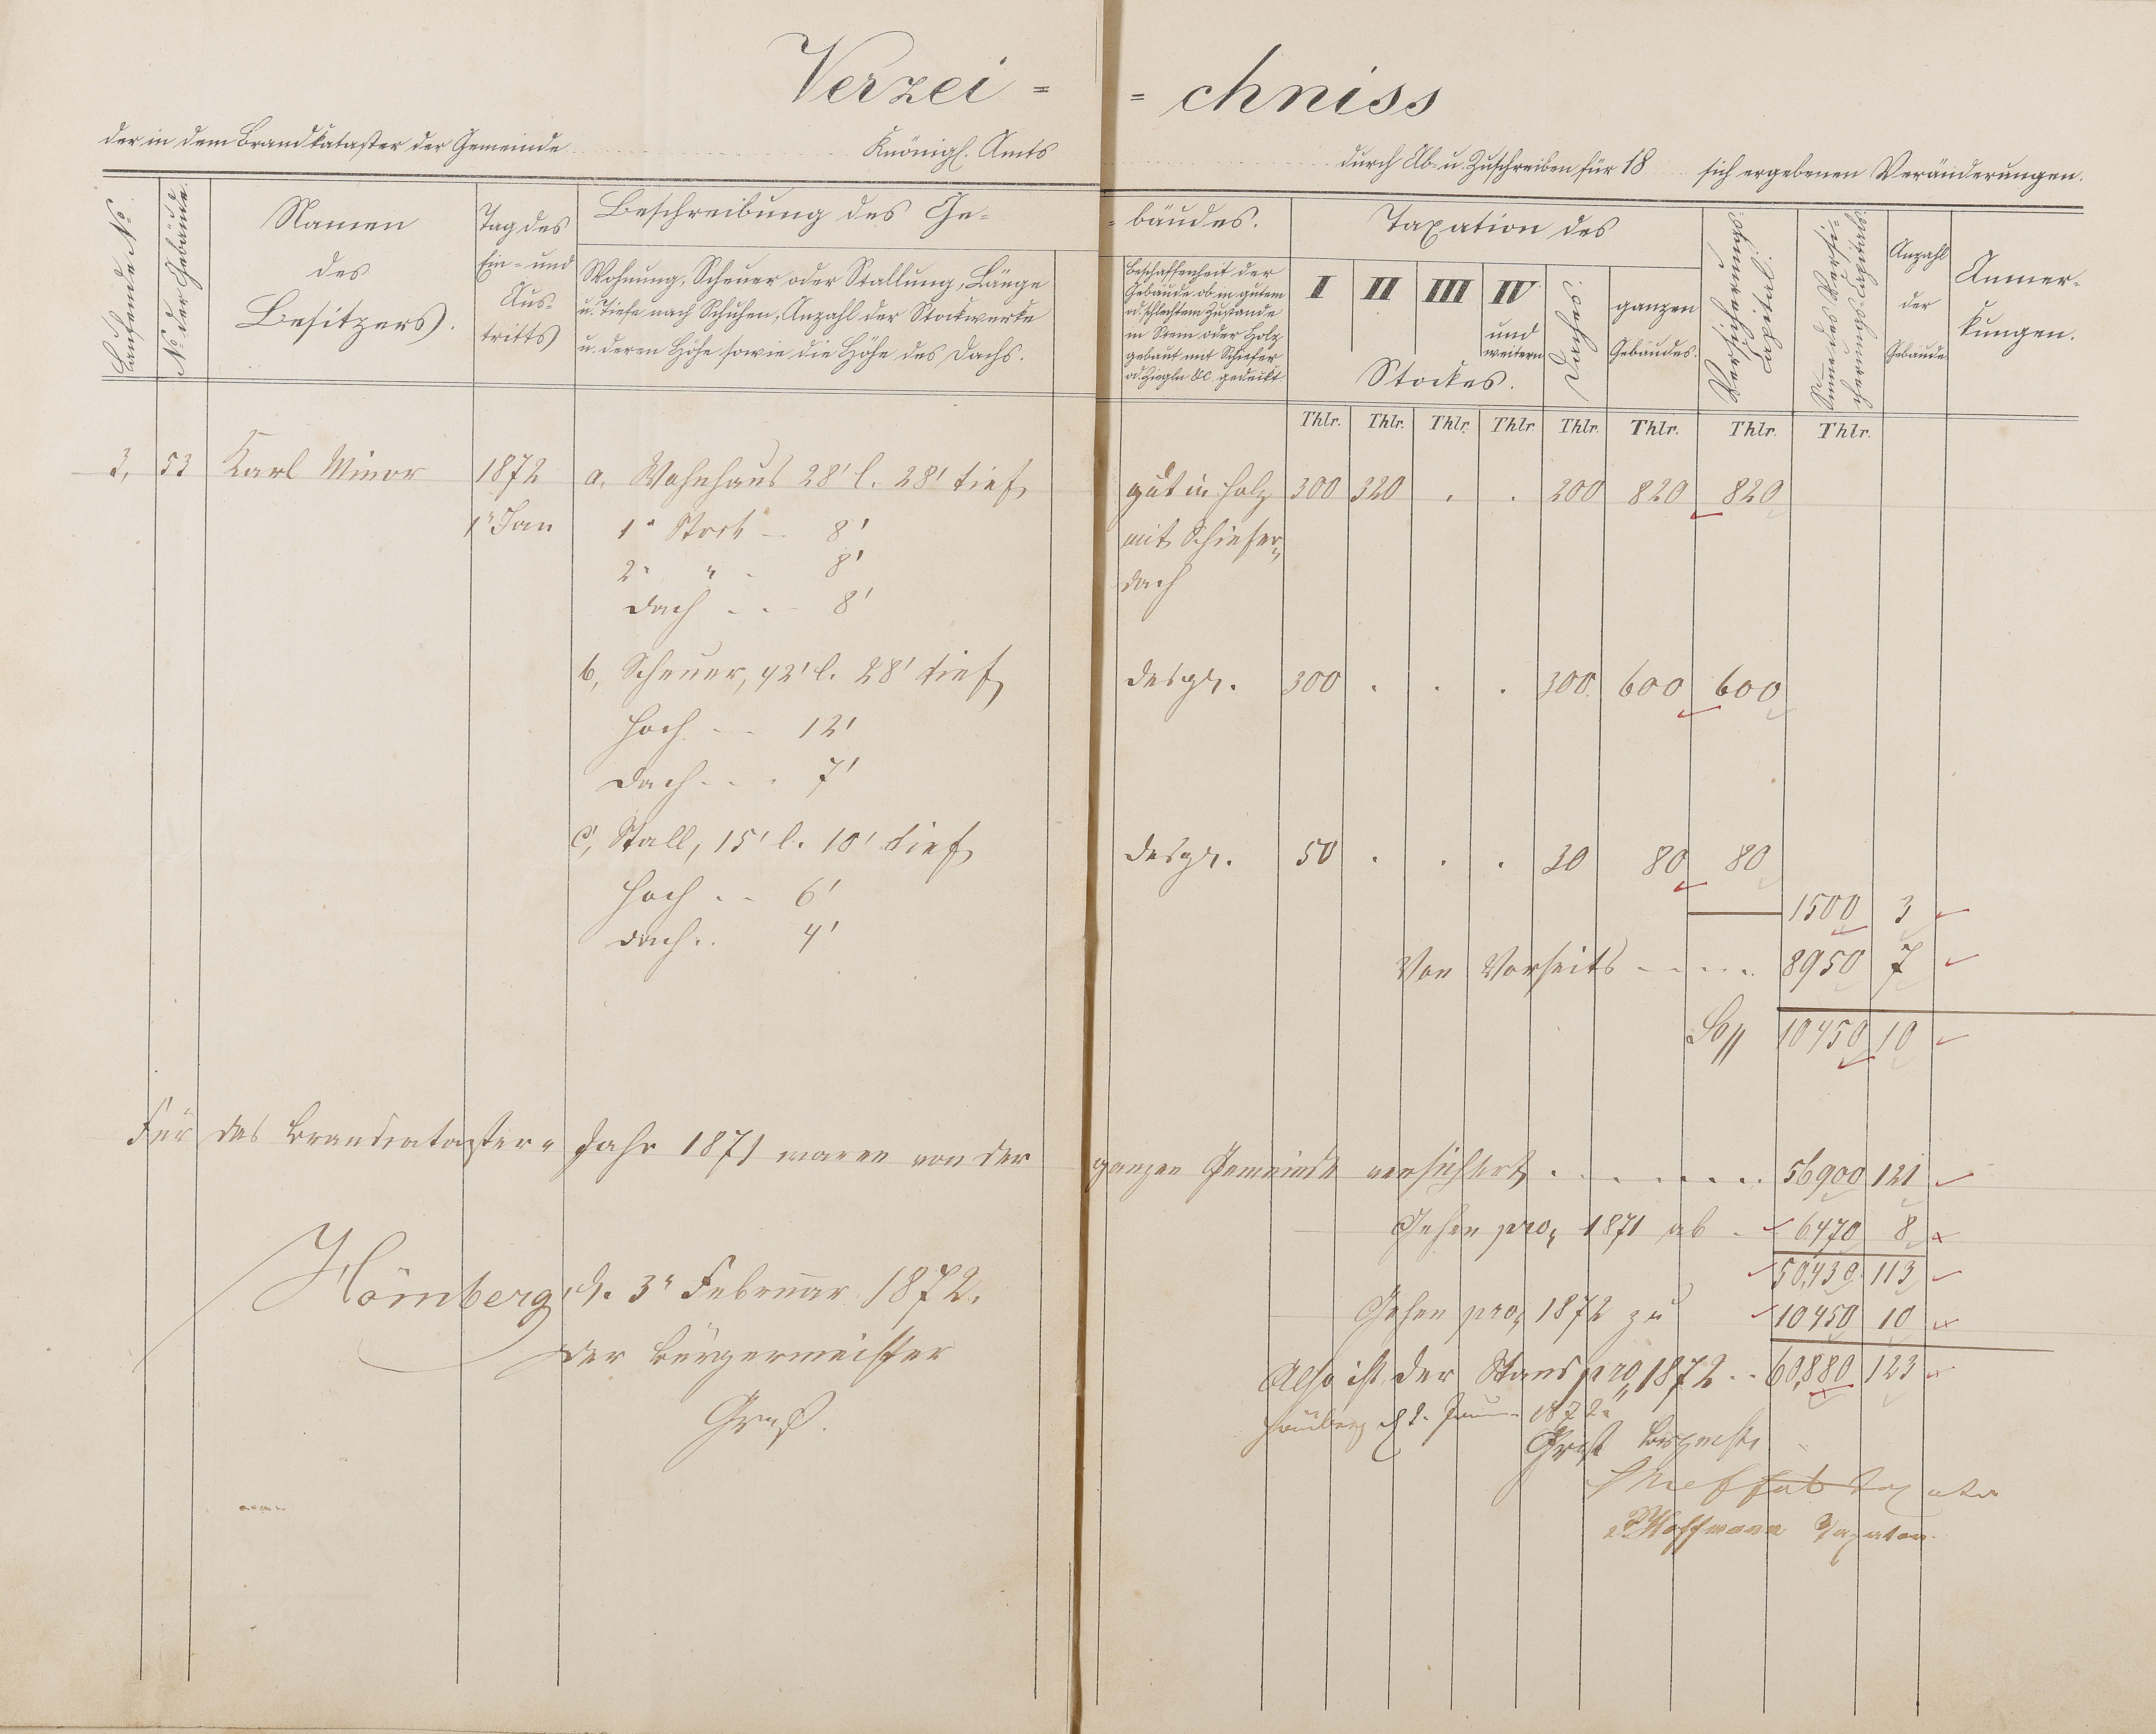 Verzei = = chniss
der in dem Brandkataster der Gemeinde Königl. Amts durch Ab- u. Zuschreiben für 18 sich ergebenen Veränderungen.
Laufende No.
No. der Gebäude.
Namen
des
Besitzers.
Tag des
Ein- und
Aus-
tritts
Beschreibung des Ge- = bäudes.
Wohnung, Scheuer oder Stallung, Länge
u. Tiefe nach Schuhen, Anzahl der Stockwerke
u. deren Höhe sowie die Höhe des Dachs.
Beschaffenheit der
Gebäude ob in gutem
od. schlechtem Zustande
in Stein oder Holz
gebaut mit Schiefer
od. Ziegln &c. gedeckt.
Taxation des
I II III IV
und
weitern
Stockes.
Daches.
ganzen
Gebäudes.
Versicherungs-
Capital.
Summe des Versi-
cherungs Capitals.
Anzahl
der
Gebäude
Anmer-
kungen.
Thlr. Thlr. Thlr. Thlr. Thlr. Thlr. Thlr. Thlr.
3, 53 Karl Minor 1872 a, Wohnhaus 28' l. 28' tief gut in Holz 300 320 . . 200 820 820
1r Jan 1r Stock - 8' mit Schiefer-
2r " - 8' dach
Dach - - 8'
b, Scheuer, 42' l. 28' tief desgl. 300 . . . 300 600 600
hoch - - 12'
Dach - - 7'
c, Stall, 15' l. 10' tief desgl. 50 . . . 30 80 80
hoch - - 6' 1500 3
Dach . . 4'
Von Vorseits - - - - 8950 7
Sa 10450 10
Für das Brandcataster- Jahr 1871 waren von der ganzen Gemeinde versichert . . . . . . . 56900 121
Gehen pro 1871 ab - 6470 8
50,430 113
Gehen pro 1872 zu 10450 10
Also ist der Stand pro 1872 . . 60,880 123
Hömberg, d. 3r Februar 1872.
Der Bürgermeister
Groß.
Hömberg 1872
Groß
Taxator
Hoffmann Taxator.